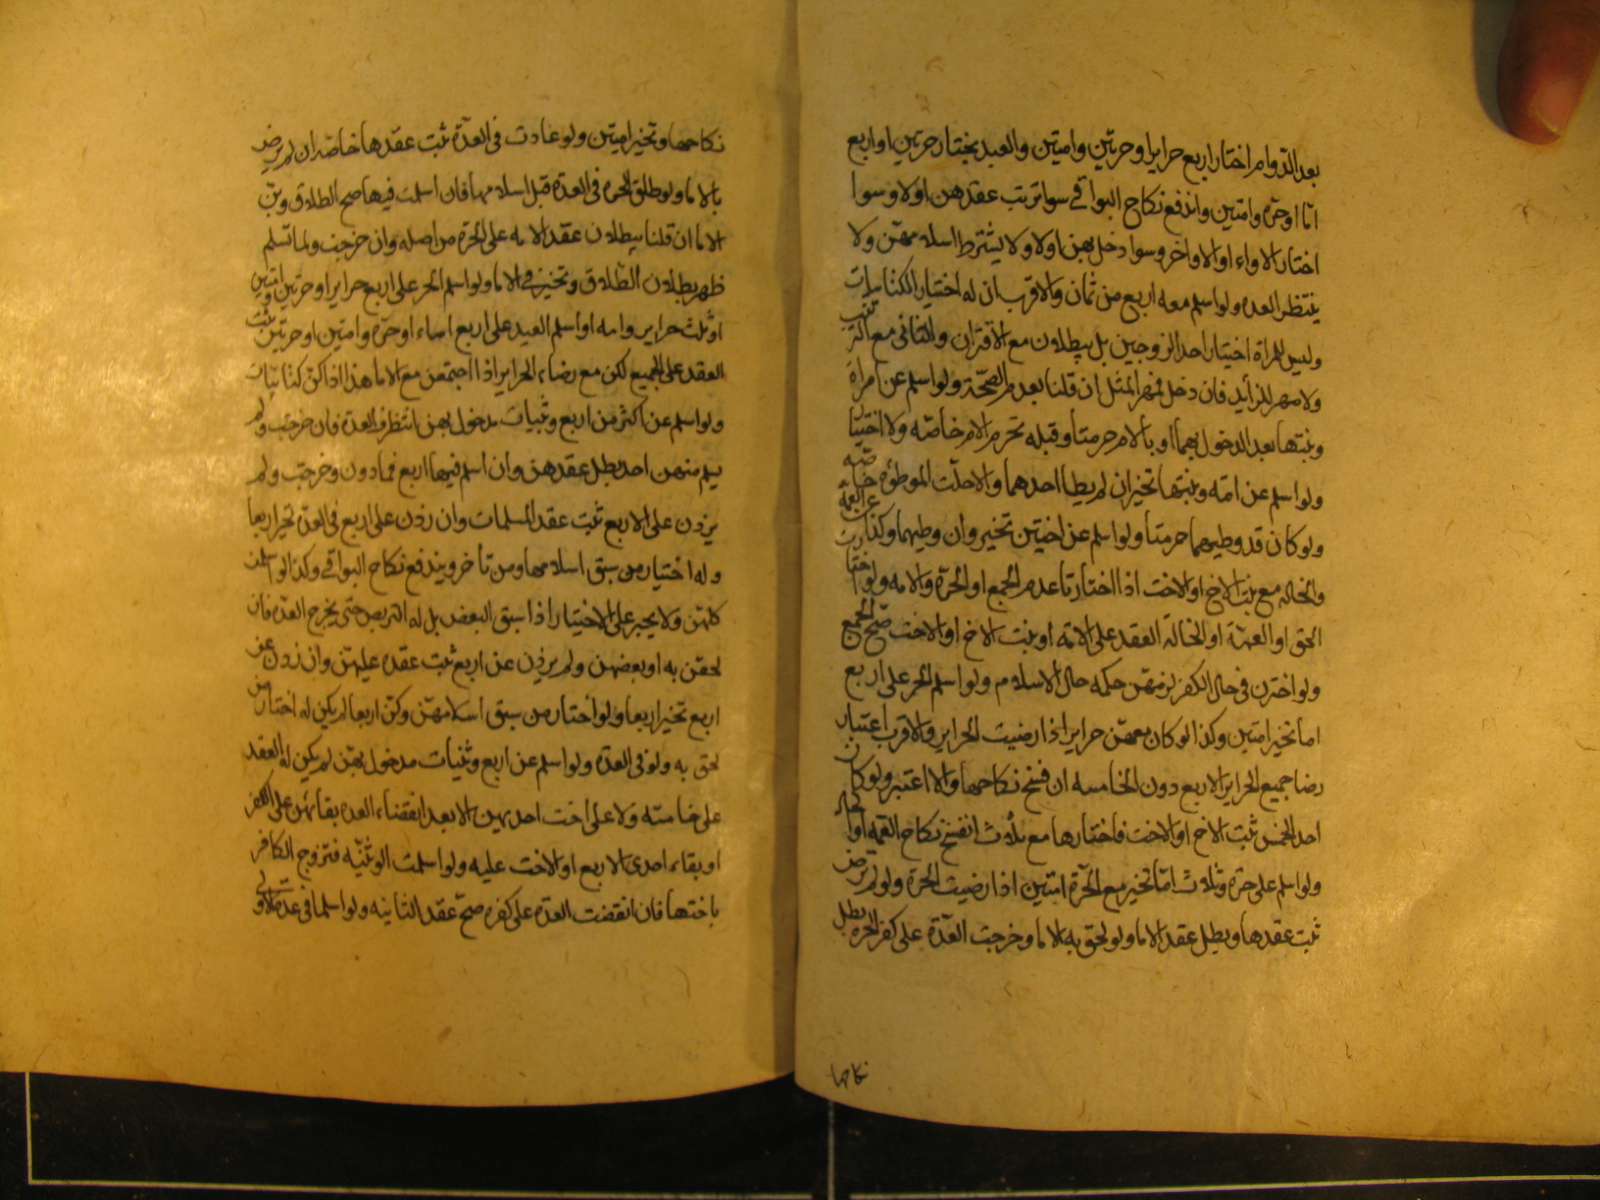 بعد الدوام اختار اربع حراير او حرتين وامتين والعبد يختار حرتين او اربع
اما او حرة وامتين واندفع نكاح البواقي سوا ترتب عقدهن اولا وسوا
اختار الاوايل او الاواخر وسوا دخل بهن اولا ولا يشترط اسلامهن ولا
ينتظر العده ولو اسلم معه اربع من ثمان والاقرب ان له اختيار الكتابيات
وليس للمراة اختيار احد الزوجين بل يبطلان مع الاقتران والثاني مع الترتيب
ولا مهر للزايد فان دخل فمهر المثل ان قلنا بعدم الصحة ولو اسلم عن امراة
وبنتها بعد الدخول بهما او بالام حرمتا وقبله تحرم الام خاصه ولا اختيار
ولو اسلم عن امه وبنتها تخير ان لم يطا احدهما والا حلت الموطؤه خاصه
ولو كان قد وطيهما حرمتا ولو اسلم عن اختين تخير وان وطيهما وكذا عن العمة
والخاله مع بنت الاخ او الاخت اذا اختارتا عدم الجمع او الحرة والامه ولو اختارت
الحره او العمة او الخالة العقد على الامة او بنت الاخ او الاخت صح الجمع
ولو اخترن في حال الكفر لزمهن حكمه حال الاسلام ولو اسلم الحر على اربع
اما تخير امتين وكذا لو كان معهن حراير اذا رضيت الحراير والاقرب اعتبار
رضا جميع الحراير الاربع دون الخامسه ان فسخ نكاحها والا اعتبر ولو كان
احد الخمس بنت الاخ او الاخت فاختارها مع ثلاث انفسخ نكاح العمه او الخالة
ولو اسلم على حرة وثلاث اما تخير مع الحرة امتين اذا رضيت الحرة ولو لم ترض
ثبت عقدها وبطل عقد الاما ولو لحق به الاما وخرجت العدة على كفر الحره بطل
نكاحها
نكاحها وتخير امتين ولو عادت في العدة ثبت عقدها خاصة ان لم ترض
بالاما ولو طلق الحره في العدة قبل اسلامها فان اسلمت فيها صح الطلاق وبن
الاما ان قلنا ببطلان عقد الامه على الحرة من اصله وان خرجت ولما تسلم
ظهر بطلان الطلاق وتخير في الاما ولو اسلم الحر على اربع حراير او حرتين وامتين
او ثلث حراير وامه او اسلم العبد على اربع اماء او حرة وامتين او حرتين ثبت
العقد على الجميع لكن مع رضاء الحراير اذا اجتمعن مع الاما هذا اذا كن كتابيات
ولو اسلم عن اكثر من اربع وثنيات مدخول بهن انتظر العدة فان خرجت ولم
يسلم منهن احد بطل عقدهن وان اسلم فيها اربع فما دون وخرجت ولم
يزدن على الاربع ثبت عقد المسلمات وان زدن على اربع في العدة تخير اربعا
وله اختيار من سبق اسلامها ومن تاخر ويندفع نكاح البواقي وكذا لو اسلمن
كلهن ولا يجبر على الاختيار اذا سبق البعض بل له التربص حتى يخرج العدة فان
لحقن به او بعضهن ولم يزدن عن اربع ثبت عقده عليهن وان زدن عن
اربع تخير اربعا ولو اختار من سبق اسلامهن وكن اربعا لم يكن له اختيار من
لحق به ولو في العدة ولو اسلم عن اربع وثنيات مدخول بهن لم يكن له العقد
على خامسه ولا على اخت احديهن الا بعد انقضاء العدة بقائهن على الكفر
او بقاء احدى الاربع او الاخت عليه ولو اسلمت الوثنيه فتزوج الكافر
باختها فان انقضت العدة على كفره صح عقد الثانيه ولو اسلما في عدة الاولى